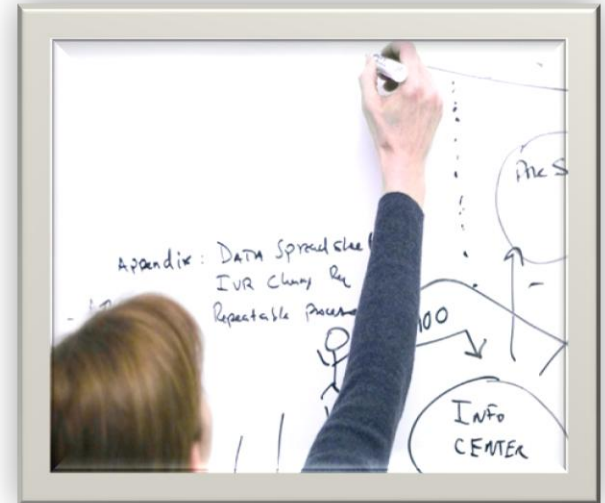 Appendix: DATA Spreadshee
IVR
Repeatable Proces
00
INFO
CENTER